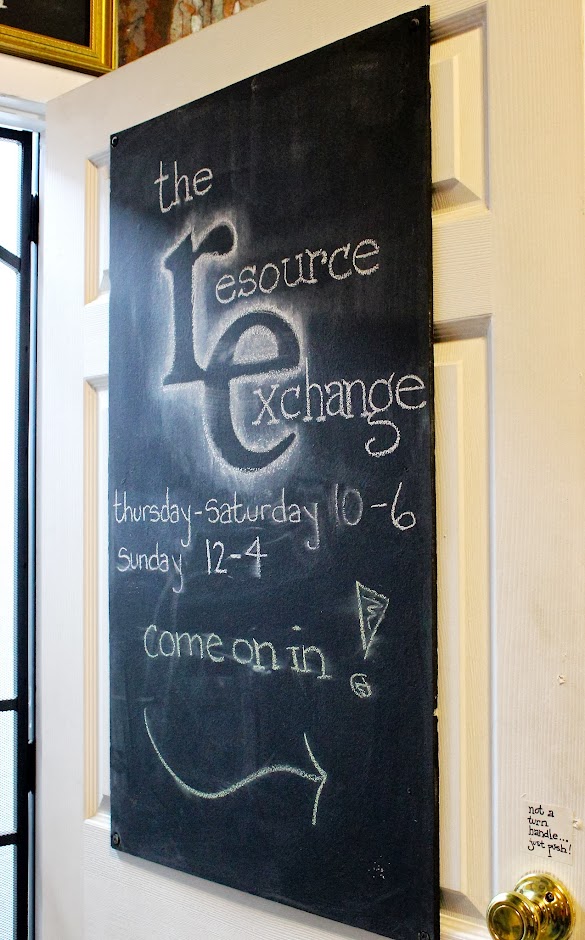 the
resource
exchange
thursday-saturday 10-6
sunday 12-4
come on in!
not a
turn
handle...
just push!